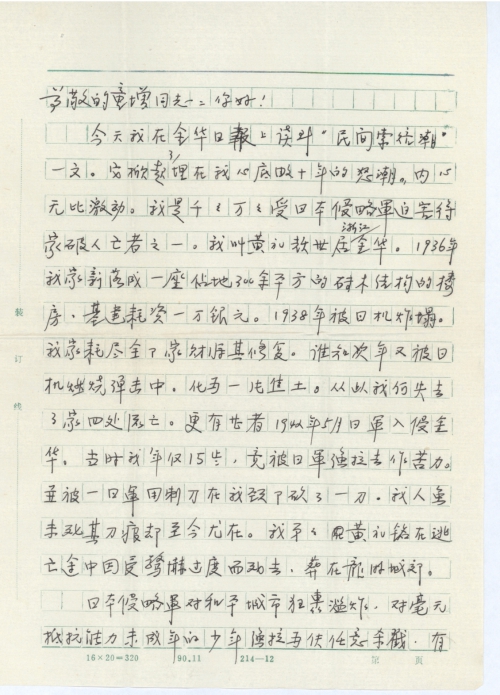 尊敬的童增同志：你好！
今天我在金华日報上读到"民间索倍潮"
一文。埋在我心底四十年的怒潮。内心
无比激动。我是千千万万受日本侵略軍迫害得
家破人亡者之一。我叫黄礼 世居浙江金华。1936年
我家新落成一座佔地300余平方的砖木结构的楼
房，基建耗资一万银元。1938年被日机炸塌。
我家耗尽全了家财 其修复。谁知次年又被日
机燃烧弹击中，化为一片焦土。从此我们失去
了家四处流亡。更有甚者1942年5月日軍入侵金
华，当时我年仅15岁，竟被日軍强拉去作苦力。
並被一日軍用刺刀在我颈了砍了一刀。我人虽
未死其刀痕却至今尤在。我 黄礼铭在逃
亡途中因受驚嚇过度而死去，葬在龍游城郊。
日本侵略軍对和平城市狂轰滥炸，对毫无
抵抗能力未成年的少年强拉为伕任意杀戮，有
装 订 线
16×20=320 90.11 214—12 第 页